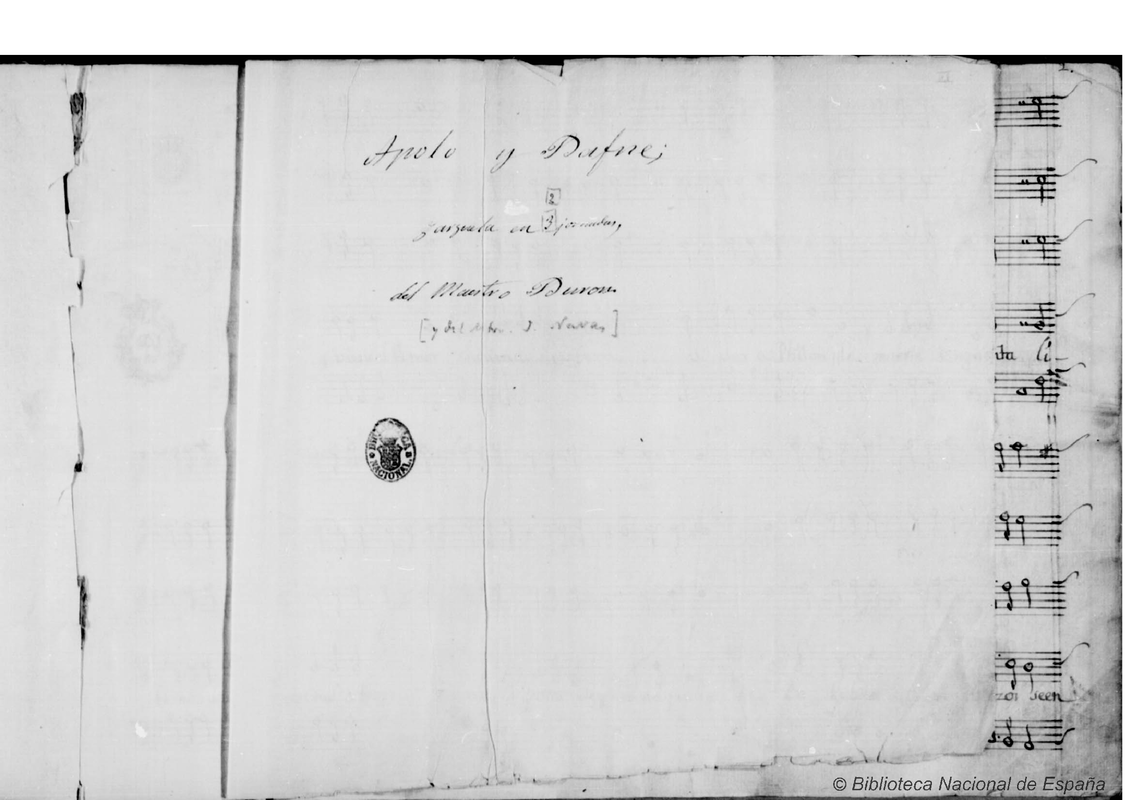 II
Apolo y Dafne;
2
zarzuela en 3 jornadas,
del Maestro Duron.
[y del Mtro. J. Navas]
BIBLIOTECA NACIONAL
ita Ci
zoi seen
© Biblioteca Nacional de España